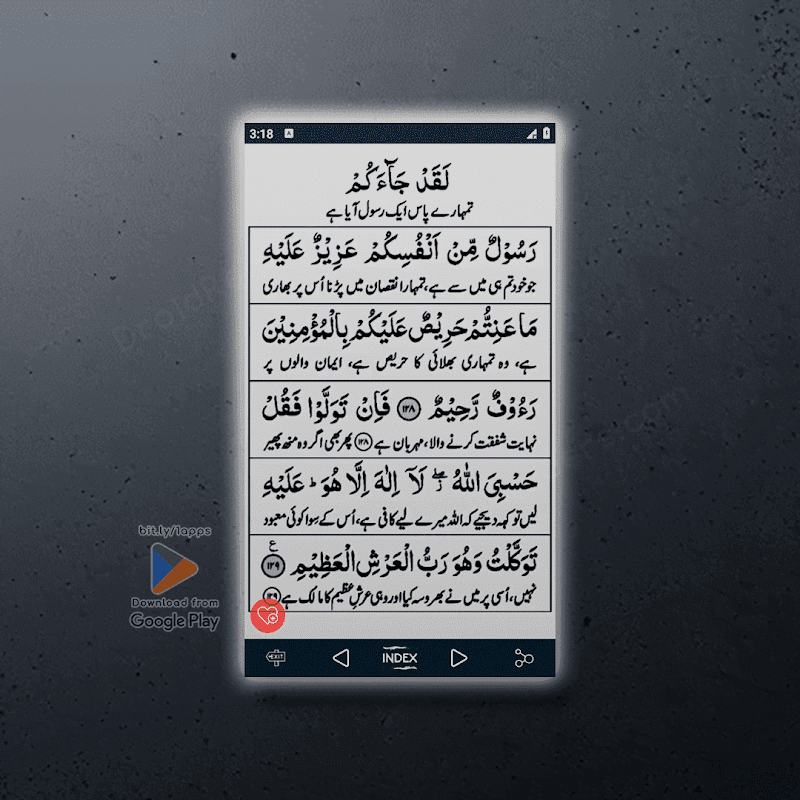 3:18
لَقَدْ جَآءَكُمْ
تمہارے پاس ایک رسول آیا ہے
رَسُوْلٌ مِّنْ اَنْفُسِكُمْ عَزِيْزٌ عَلَيْهِ
جو خود تم ہی میں سے ہے، تمہارا نقصان میں پڑنا اُس پر بھاری
مَا عَنِتُّمْ حَرِيْصٌ عَلَيْكُمْ بِالْمُؤْمِنِيْنَ
ہے، وہ تمہاری بھلائی کا حریص ہے، ایمان والوں پر
رَءُوْفٌ رَّحِيْمٌ ۱۲۸ فَاِنْ تَوَلَّوْا فَقُلْ
نہایت شفقت کرنے والا، مہربان ہے ۱۲۸ پھر بھی اگر وہ منھ پھیر
حَسْبِيَ اللّٰهُ ۖ٘ لَآ اِلٰهَ اِلَّا هُوَ ؕ عَلَيْهِ
لیں تو کہہ دیجیے کہ اللہ میرے لیے کافی ہے، اُس کے سِوا کوئی معبود
تَوَكَّلْتُ وَهُوَ رَبُّ الْعَرْشِ الْعَظِيْمِ ۱۲۹ ع
نہیں، اُسی پر میں نے بھروسہ کیا اور وہی عرشِ عظیم کا مالک ہے ۱۲۹
bit.ly/1apps
Download from
Google Play
EXIT
INDEX